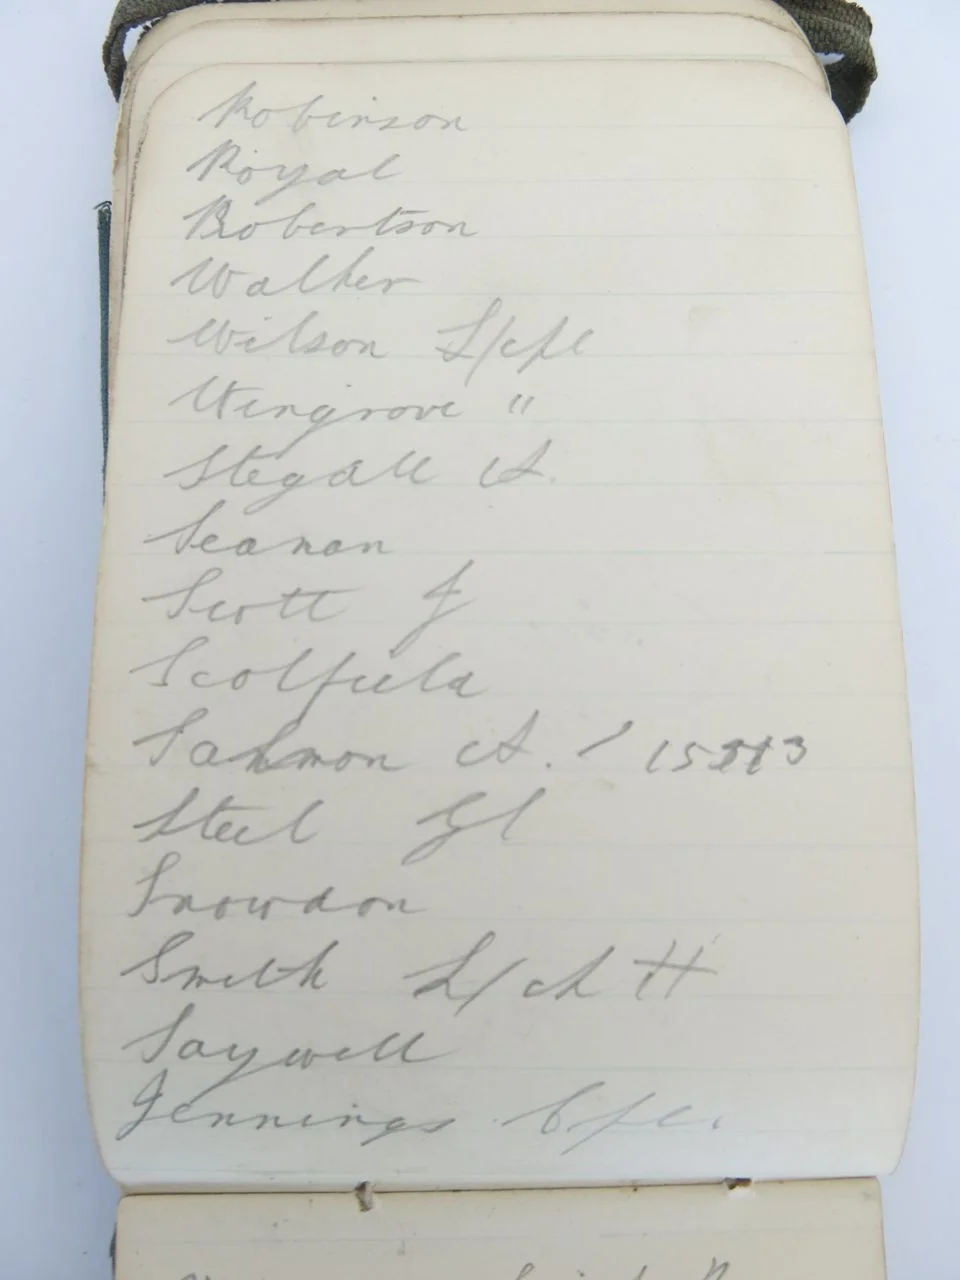 Robinson
Royal
Robertson
Walker
Wilson L/cpl
Wingrove "
Stegall A.
Seaman
Scott J
Scolfield
Sammon A. /
Steel
Snowdon
Smith
Saywell
Jennings Cpl.